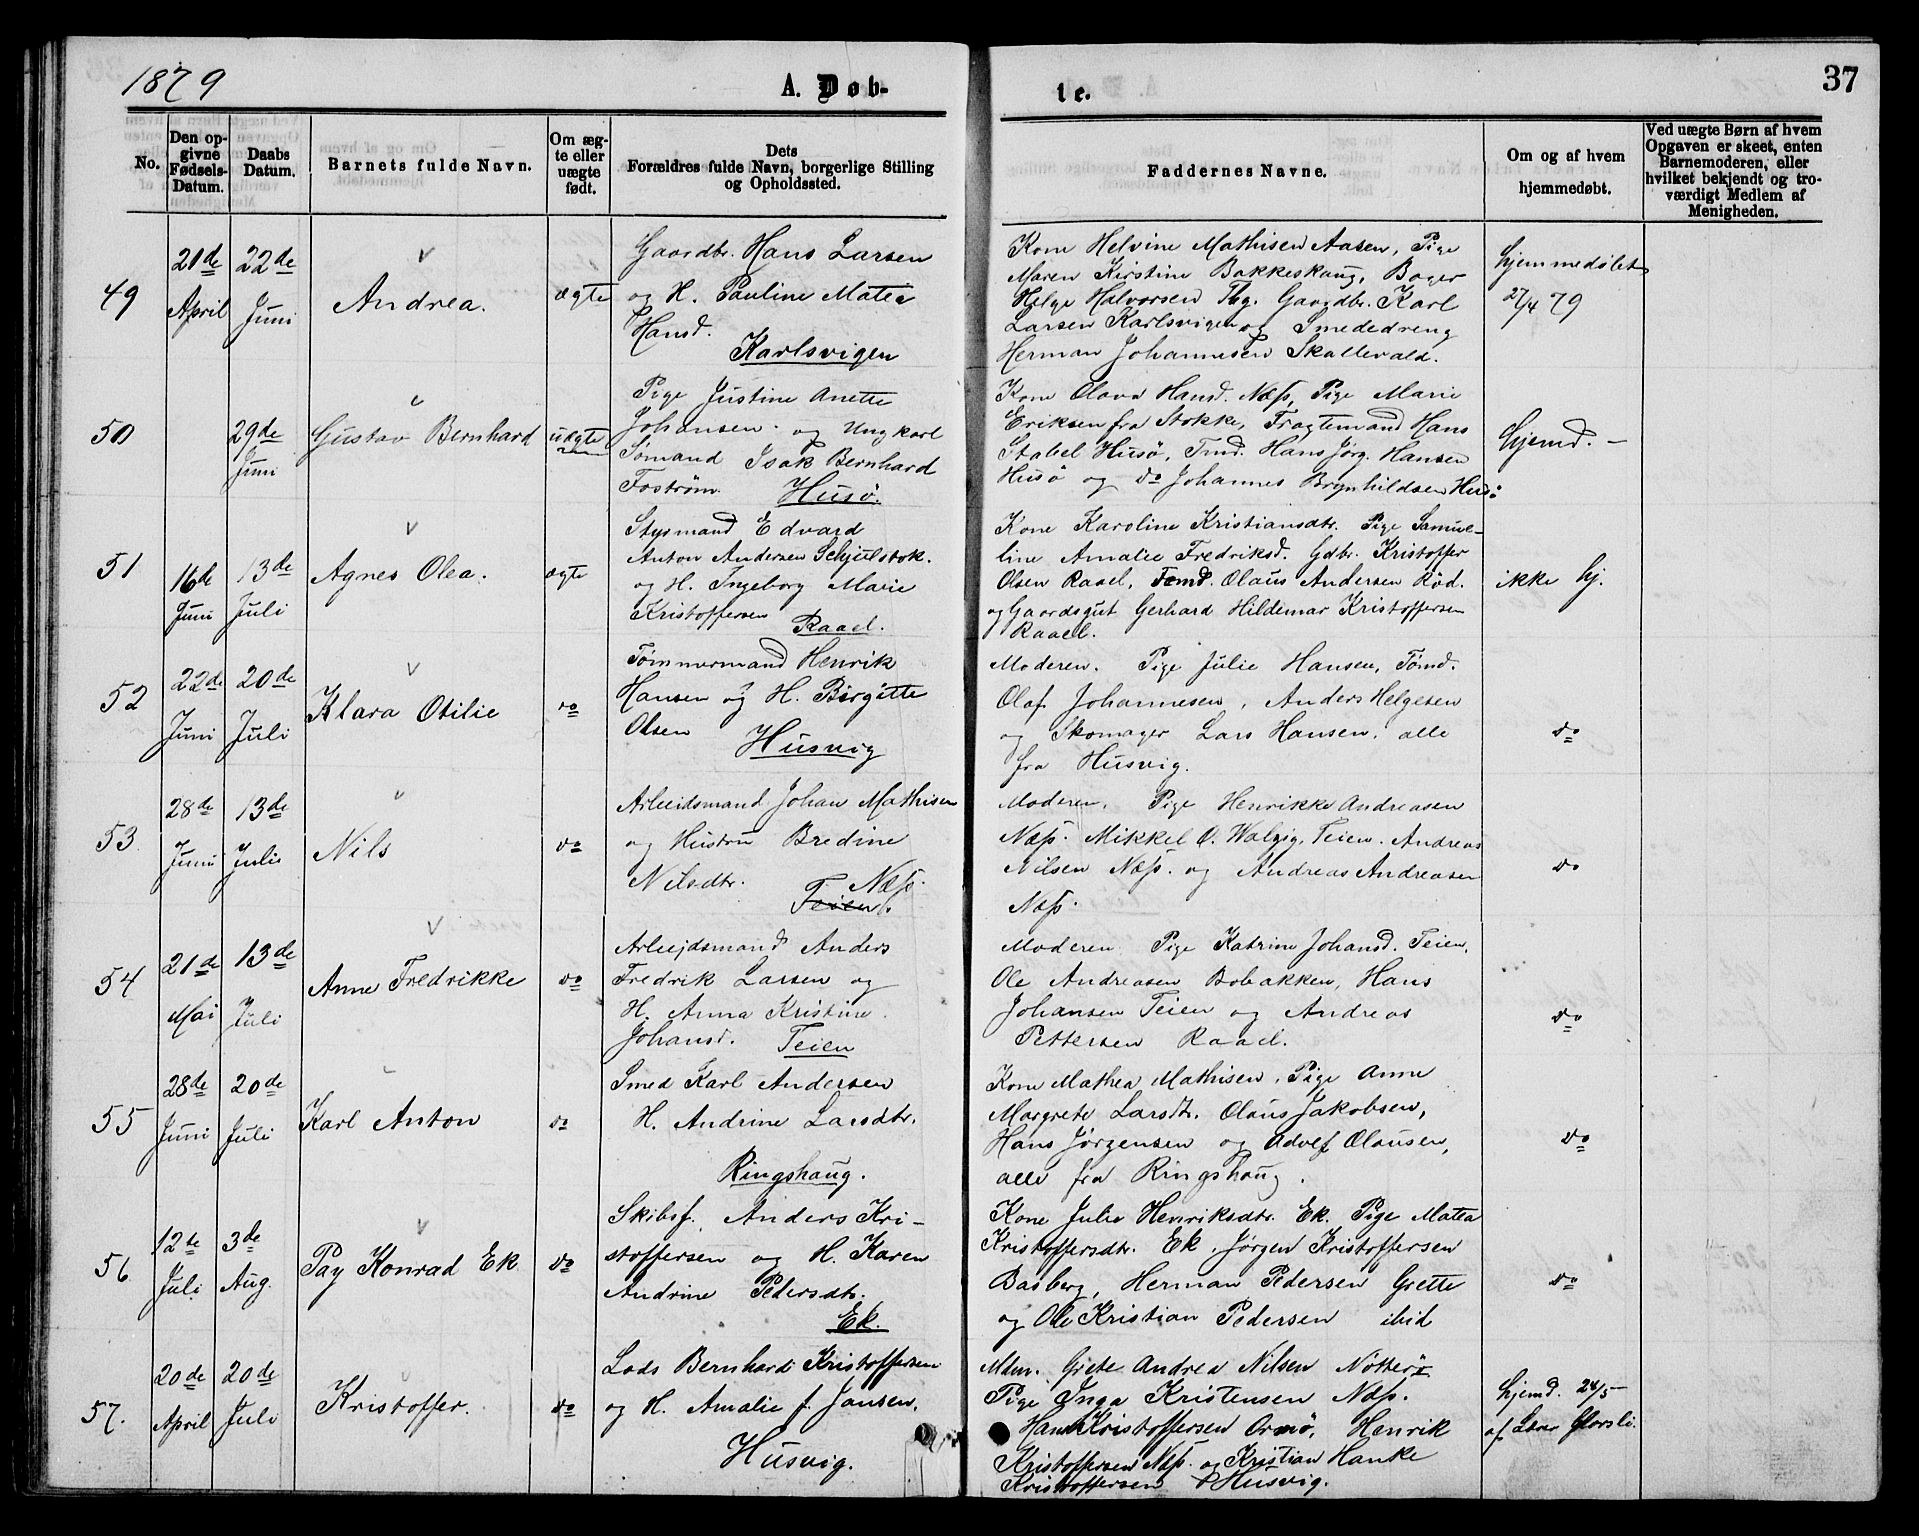 1879
A. Døb-
te.
37
No.
Den op-
givne
Fødsels-
Datum.
Daabs
Datum.
Barnets fulde Navn.
Om æg-
te eller
uægte
født.
Dets
Forældres fulde Navn, borgerlige Stilling
og Opholdssted.
Faddernes Navne.
Om og af hvem
hjemmedøbt.
Ved uægte Børn af hvem
Opgaven er skeet, enten
Barnemoderen, eller
hvilket bekjendt og tro-
værdigt Medlem af
Menigheden.
49
21de
April
22de
Juni
Andrea.
ægte
Gaardbr. Hans Larsen
og H. Pauline Matea
Hansd.
Karlsvigen
Kone Helvine Mathisen Aasen, Pige
Maren Kirstine Bakkeskaug, Bager
Helge Halvorsen Tbg. Gaardbr. Karl
Larsen Karlsvigen og Smededreng
Herman Johannesen Skallevald.
hjemmedøbt
27/4 79
50
29de
Juni
Gustav Bernhard
uægte
Pige Justine Anette
Johansen. og Ungkarl
Sømand Isak Bernhard
Fostrøm. Husø.
Kone Olava Hansd. Næss, Pige Marie
Eriksen fra Stokke, Fragtemand Hans
Stabel Husø, Tmd. Hans Jørg. Hansen
Husø og do Johannes Brynhildsen Husø
hjemd. –
51
16de
Juni
13de
Juli
Agnes Olea.
ægte
Stysmand Edvard
Anton Andersen Schjulstok.
og H. Ingeborg Marie
Kristoffersen Raael.
Kone Karoline Kristiansdtr. Pige Samue-
line Amalie Fredriksd. Gdbr. Kristoffer
Olsen Raael, Tømd. Olaus Andersen Rød.
og Gaardsgut Gerhard Hildemar Kristoffersen
Raael.
ikke hj.
52
22de
Juni
20de
Juli
Klara Otilie
do
Tømmermand Henrik
Hansen og H. Birgitte
Olsen Husvig
Moderen. Pige Julie Hansen, Tømd.
Olaf Johannesen, Anders Helgesen
og Skomager Lars Hansen, alle
fra Husvig.
do
53
28de
Juni
13de
Juli
Nils
do
Arbeidsmand Johan Mathisen
og Hustru Bredine
Nilsdtr. Næss.
Teien.
Moderen, Pige Henrikke Andreasen
Næss. Mikkel O. Walgig, Teien. Andreas
Nilsen Næss. og Andreas Andreasen
Næss.
do
54
21de
Mai
13de
Juli
Anne Fredrikke
do
Arbejdsmand Anders
Fredrik Larsen og
H. Anna Kristine
Johansd. Teien
Moderen Pige Katrine Johansd. Teien,
Ole Andreasen Bobakken, Hans
Johansen Teien og Andreas
Pettersen Raael.
do
55
28de
Juni
20de
Juli
Karl Anton
do
Smed Karl Andersen
H. Andrine Larsdtr.
Ringshaug.
Kone Mathea Mathisen, Pige Anne
Margrete Larsdtr. Olaus Jakobsen,
Hans Jørgensen og Advef Olausen,
alle fra Ringshaug.
do
56
12te
Juli
3de
Aug.
Pay Konrad Ek
do
Skibsf. Anders Kri-
stoffersen og H. Karen
Andrine Pedersdtr.
Ek.
Kone Julie Henriksdtr. Ek. Pige Matea
Kristoffersdtr. Ek. Jørgen Kristoffersen
Basberg, Herman Pedersen Grette
og Ole Kristian Pedersen ibid
do
57.
20de
April
20de
Juli
Kristoffer.
do
Lods Bernhard Kristoffersen
og H. Amalie f. Jansen.
Husvig.
Mdm. Grete Andrea Nilsen Nøtterø
Pige Inga Kristensen Næss.
Hans Kristoffersen Ormø, Henrik
Kristoffersen Næss. og Kristian Hanke
Kristoffersen Husvig.
hjemd. 24/5
af Lærer Glorsli.